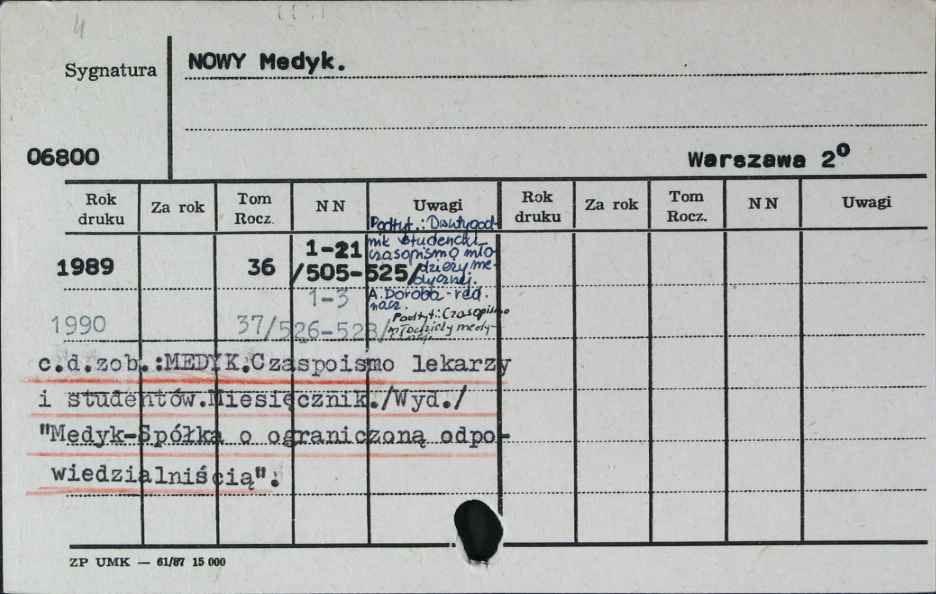 4
Sygnatura
NOWY Medyk.
06800
Warszawa 2º
Rok druku Za rok Tom Rocz. NN Uwagi Rok druku Za rok Tom Rocz. NN Uwagi
Podtyt.: Dwutygod-
mik studencki
czasopismo mło-
dzieży me-
dycznej.
1989 36 1-21
/505-525/
A. Doroba - red.
nacz.
1-3
1990 37/526-528/
Podtyt.: Czasopismo
młodzieży medy-
c.d.zob.:MEDYK.Czaspoismo lekarzy
i studentów.Miesięcznik./Wyd./
"Medyk-Spółka o ograniczoną odpo-
wiedzialniścią".
ZP UMK — 61/87 15 000